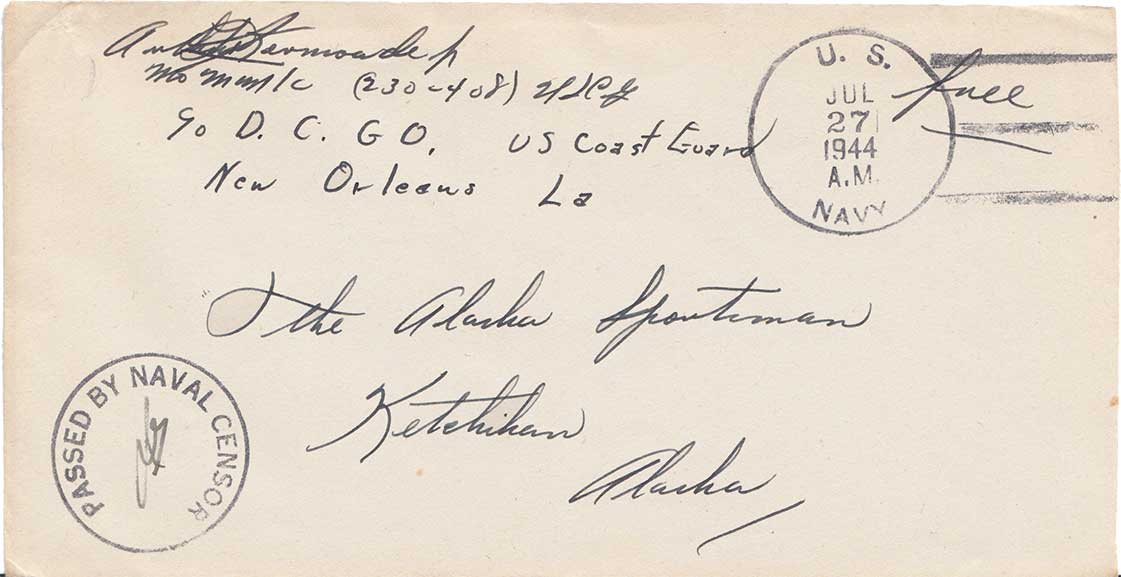 MoMM1/c (230-408) USCG
c/o D. C. G O, US Coast Guard
New Orleans La
free
U. S.
JUL
27
1944
A.M.
NAVY
The Alaska Sportsman
Ketchikan
Alaska
PASSED BY NAVAL CENSOR